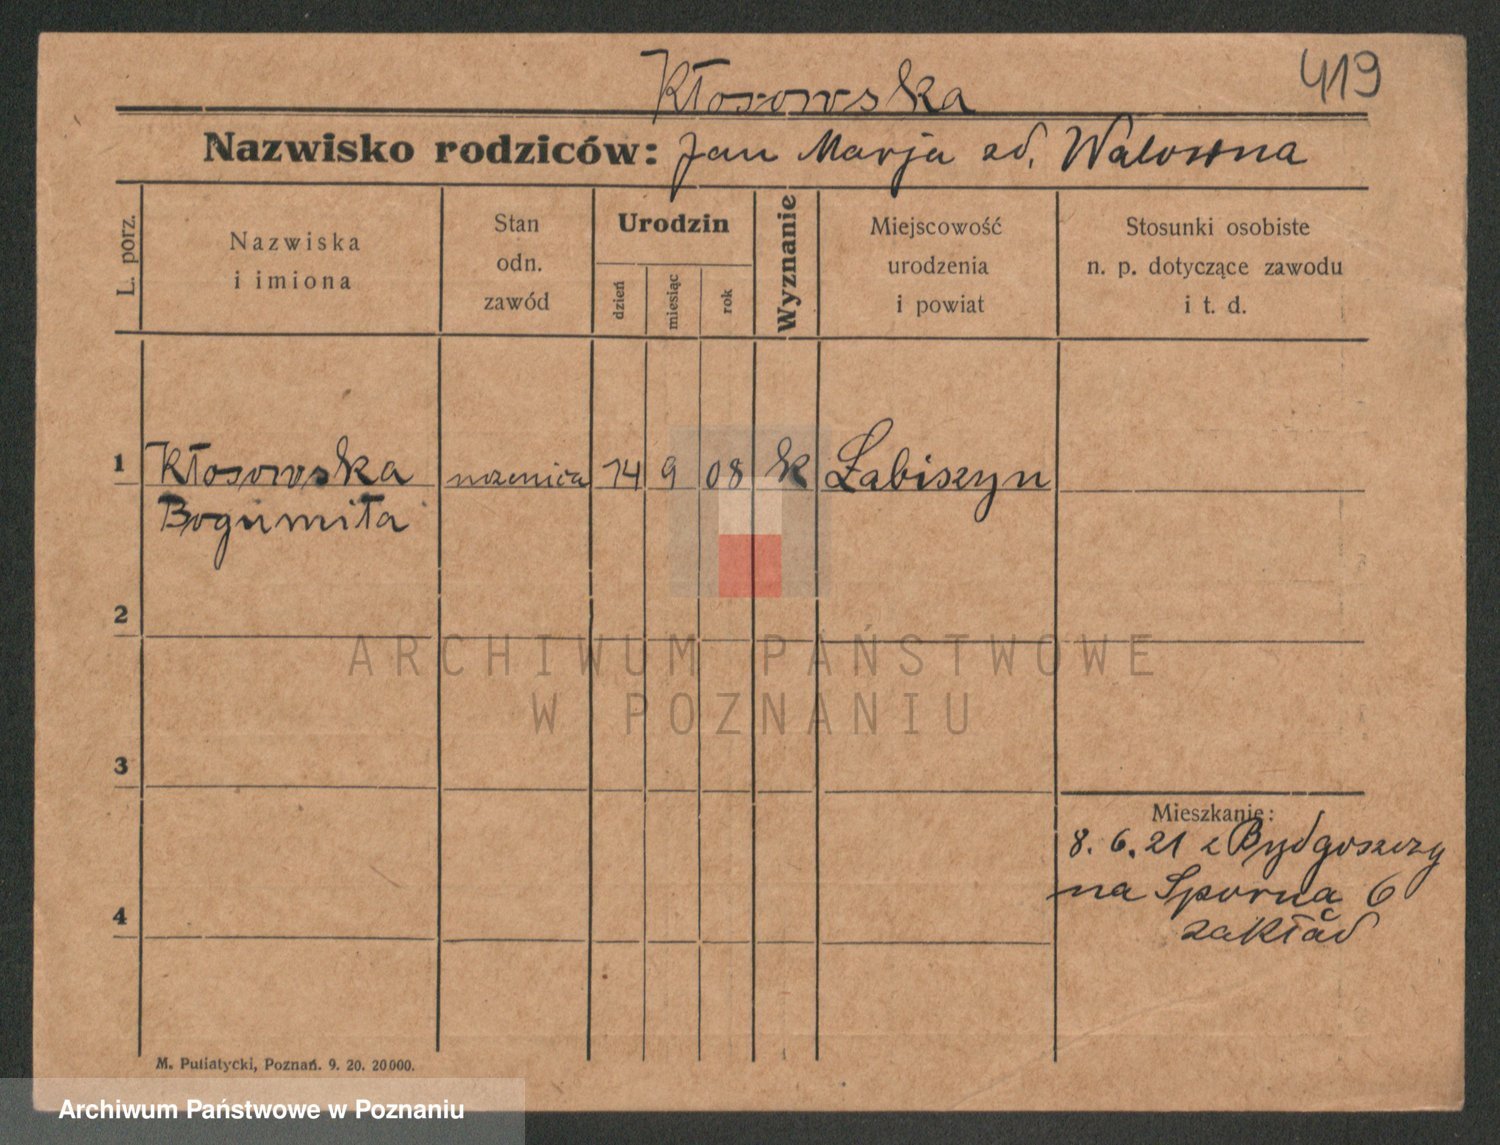 419
Kłosowska
Nazwisko rodziców: Jan Marja zd.
L. porz.
Nazwiska
i imiona
Stan
odn.
zawód
Urodzin
dzień
miesiąc
rok
Wyznanie
Miejscowość
urodzenia
i powiat
Stosunki osobiste
n. p. dotyczące zawodu
i t. d.
1 Kłosowska uczenica 14 9 08 k Łabiszyn
Bogumiła
2
ARCHIWUM PAŃSTWOWE
W POZNANIU
3
Mieszkanie:
8. 6. 21 z Bydgoszczy
na Sporną 6
4
zakład
M. Putiatycki, Poznań. 9. 20. 20000.
Archiwum Państwowe w Poznaniu